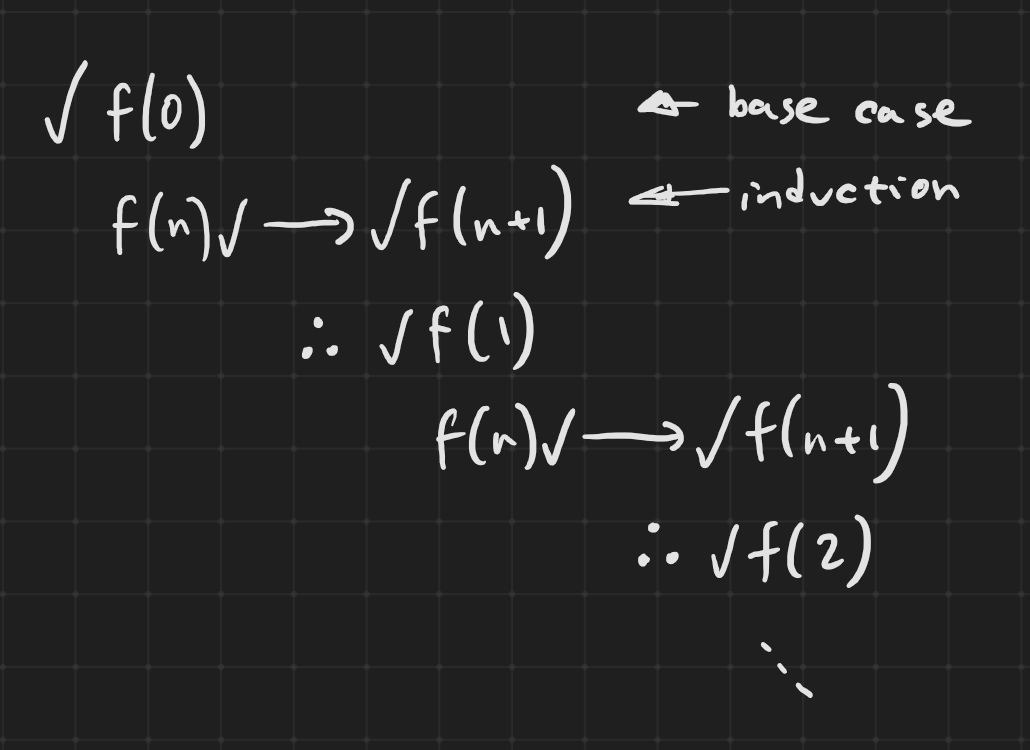 ✓ f(0) ← base case
f(n)✓ → ✓f(n+1) ← induction
∴ ✓f(1)
f(n)✓ → ✓f(n+1)
∴ ✓f(2)
⋱